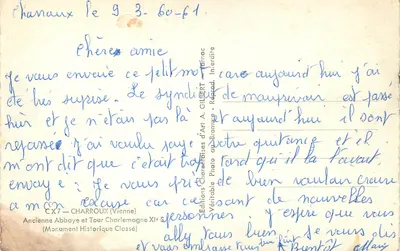 Charroux le 9 3-60-61.
Chères amie
je vous envoie ce petit mot car aujourd'hui j'ai
été très surpise. Le syndic de mauprevoir est passé
hier et je n'étais pas là et aujourd'hui il sont
repassé j'ai voulu payé votre quitance et il
m'ont dit que c'était trop tard qui il la
envoyé. je vous prie de bien vouloir
a mon cause car ce sont de nouvelles
personnes. j'espère que vous
ally tous bien. je vous dis
A Bientôt
et vous embrasse
CX7 — CHARROUX (Vienne)
Ancienne Abbaye et Tour Charlemagne XIe S.
(Monument Historique Classé)
Editions Charentaises d'Art A. GILBERT
Véritable Photo au Bromure - Reprod. Interdite